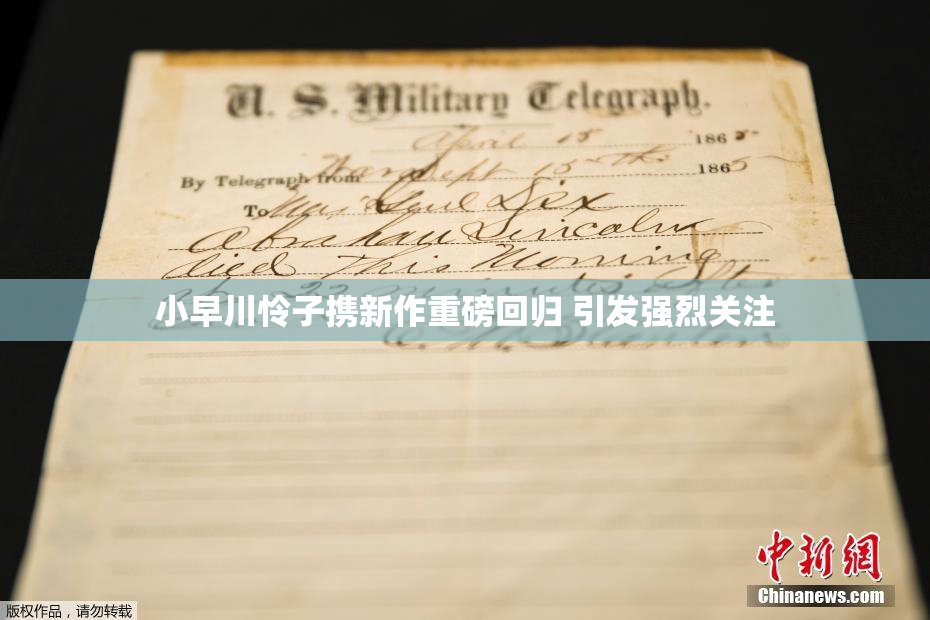 U. S. Military Telegraph.
April 15 1865
By Telegraph from War Dept 15th 1865
To Maj Genl Dix
Abraham Lincoln
died This Morning
at 22 minutes after
小早川怜子携新作重磅回归 引发强烈关注
E. M. Stanton
中新网
Chinanews.com
版权作品，请勿转载